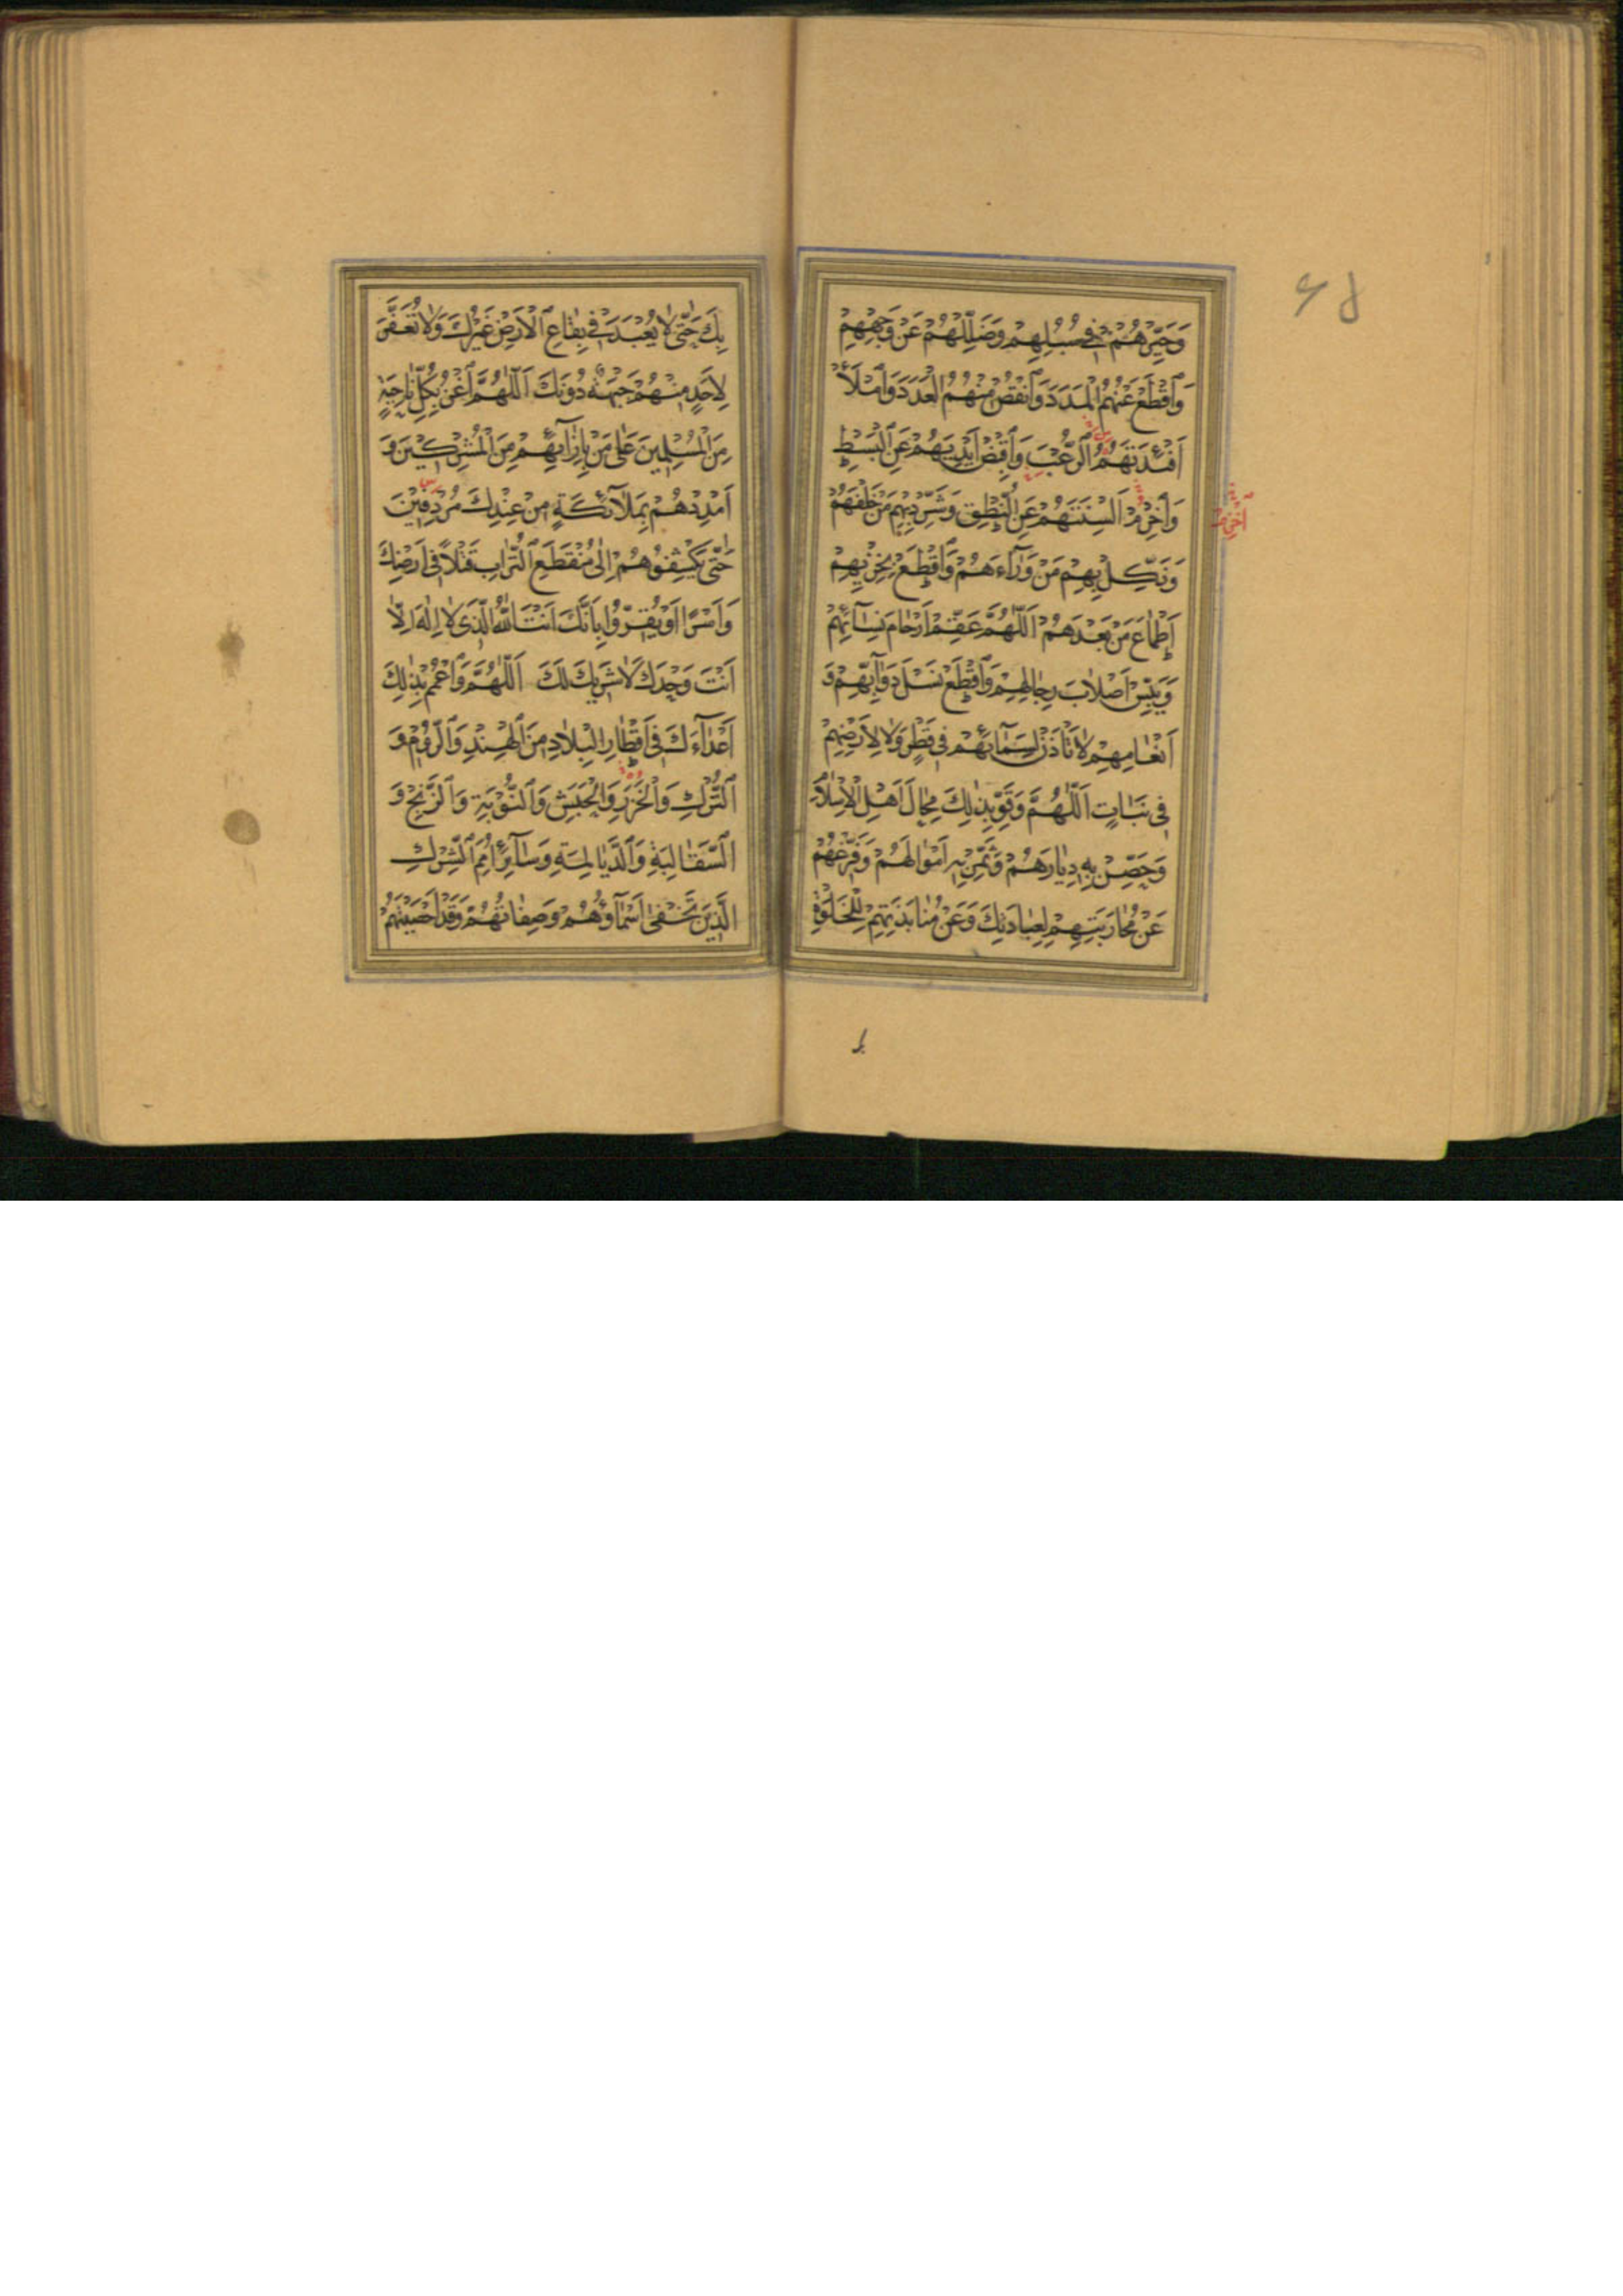 وَحَيِّرْهُمْ فِي سُبُلِهِمْ وَضَلِّلْهُمْ عَنْ وَجْهِهِمْ
وَٱقْطَعْ عَنْهُمُ الْمَدَدَ وَٱنْقُصْ مِنْهُمُ الْعَدَدَ وَٱمْلَأْ
اَفْئِدَتَهُمُ ٱلرُّعْبَ وَٱقْبِضْ اَيْدِيَهُمْ عَنِ ٱلْبَسْطِ
وَٱخْزِمْ اَلْسِنَتَهُمْ عَنِ ٱلنُّطْقِ وَشَرِّدْ بِهِمْ مَنْ خَلْفَهُمْ
اَخْرِمْ
وَنَكِّلْ بِهِمْ مَنْ وَرَآءَهُمْ وَٱقْطَعْ بِخِزْيِهِمْ
اَطْمَاعَ مَنْ بَعْدَهُمْ اَللّٰهُمَّ عَقِّمْ اَرْحَامَ نِسَآئِهِمْ
وَيَبِّسْ اَصْلَابَ رِجَالِهِمْ وَٱقْطَعْ نَسْلَ دَوَآبِّهِمْ وَ
اَنْعَامِهِمْ لَا تَأْذَنْ لِسَمَآئِهِمْ فِي قَطْرٍ وَلَا لِاَرْضِهِمْ
فِي نَبَاتٍ اَللّٰهُمَّ وَقَوِّ بِذٰلِكَ مِحَالَ اَهْلِ الْاِسْلَامِ
وَحَصِّنْ بِهِ دِيَارَهُمْ وَثَمِّرْ بِهِ اَمْوَالَهُمْ وَفَرِّغْهُمْ
عَنْ مُحَارَبَتِهِمْ لِعِبَادَتِكَ وَعَنْ مُنَابَذَتِهِمْ لِلْخَلْوَةِ
بِكَ حَتّٰى لَا يُعْبَدَ فِي بِقَاعِ ٱلْاَرْضِ غَيْرُكَ وَلَا تُعَفَّرَ
لِاَحَدٍ مِنْهُمْ جَبْهَةٌ دُونَكَ اَللّٰهُمَّ ٱغْزُ بِكُلِّ نَاحِيَةٍ
مِنَ الْمُسْلِمِينَ عَلٰى مَنْ بِاِزَآئِهِمْ مِنَ الْمُشْرِكِينَ وَ
اَمْدِدْهُمْ بِمَلَآئِكَةٍ مِنْ عِنْدِكَ مُرْدِفِينَ
حَتّٰى يَكْشِفُوهُمْ اِلٰى مُنْقَطَعِ ٱلتُّرَابِ قَتْلًا فِي اَرْضِكَ
وَاَسْرًا اَوْ يُقِرُّوا بِاَنَّكَ اَنْتَ اللّٰهُ الَّذِي لَا اِلٰهَ اِلَّا
اَنْتَ وَحْدَكَ لَا شَرِيكَ لَكَ اَللّٰهُمَّ وَٱعْمُمْ بِذٰلِكَ
اَعْدَآءَكَ فِي اَقْطَارِ الْبِلَادِ مِنَ ٱلْهِنْدِ وَٱلرُّومِ وَ
ٱلتُّرْكِ وَالْخَزَرِ وَالْحَبَشِ وَٱلنُّوبَةِ وَٱلزَّنْجِ وَ
ٱلسَّقَالِبَةِ وَٱلدَّيَالِمَةِ وَسَآئِرِ اُمَمِ ٱلشِّرْكِ
الَّذِينَ تَخْفٰى اَسْمَآؤُهُمْ وَصِفَاتُهُمْ وَقَدْ اَحْصَيْتَهُمْ